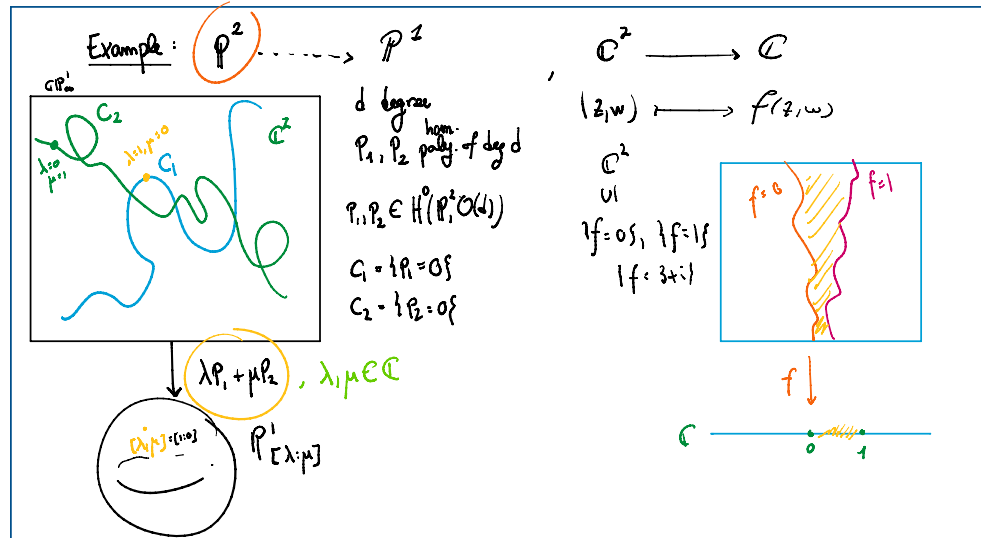 Example: ℙ² ⇢ ℙ¹
ℂP¹∞
C₂
λ=0
μ=1
λ=1, μ=0
C₁
ℂ²
d degree
P₁, P₂ hom. poly. of deg d
P₁, P₂ ∈ H⁰(ℙ², O(d))
C₁ = {P₁=0}
C₂ = {P₂=0}
λP₁ + μP₂, λ, μ ∈ ℂ
[λ:μ]=[1:0]
ℙ¹[λ:μ]
, ℂ² ⟶ ℂ
(z,w) ⟼ f(z,w)
ℂ²
∪|
{f=0}, {f=1}
{f=3+i}
f=0
f=1
f
ℂ
0 1